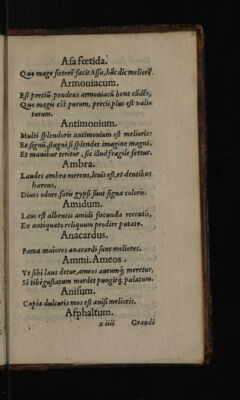 Asa fœtida.
Quo mage fœtorē facit Assa, hāc dic meliorē.
Armoniacum.
Est preciū pendens armoniacū bene cādēs,
Quo magis est purum, precii plus est valiturum.
Antimonium.
Multi splendoris antimonium est melioris:
Et signū, stagni si splendet imagine magni.
Et manibus teritur, sic illud fragile fertur.
Ambra.
Laudes ambra merens, leuis est, et dentibus
hærens,
Diues odore, foris gypsi sunt signa coloris.
Amidum.
Laus est albentis amidi fœcunda recentis,
Ex antiquato reliquum prodire putato.
Anacardus.
Fama maiores anacardi sunt meliores.
Ammi. Ameos.
Vt sibi laus detur, ameos aurumq; meretur,
Si tibi gustatum mordet pungitq; palatum.
Anisum.
Copia dulcoris mos est anisi melioris.
Asphaltum.
x iiii Grandi